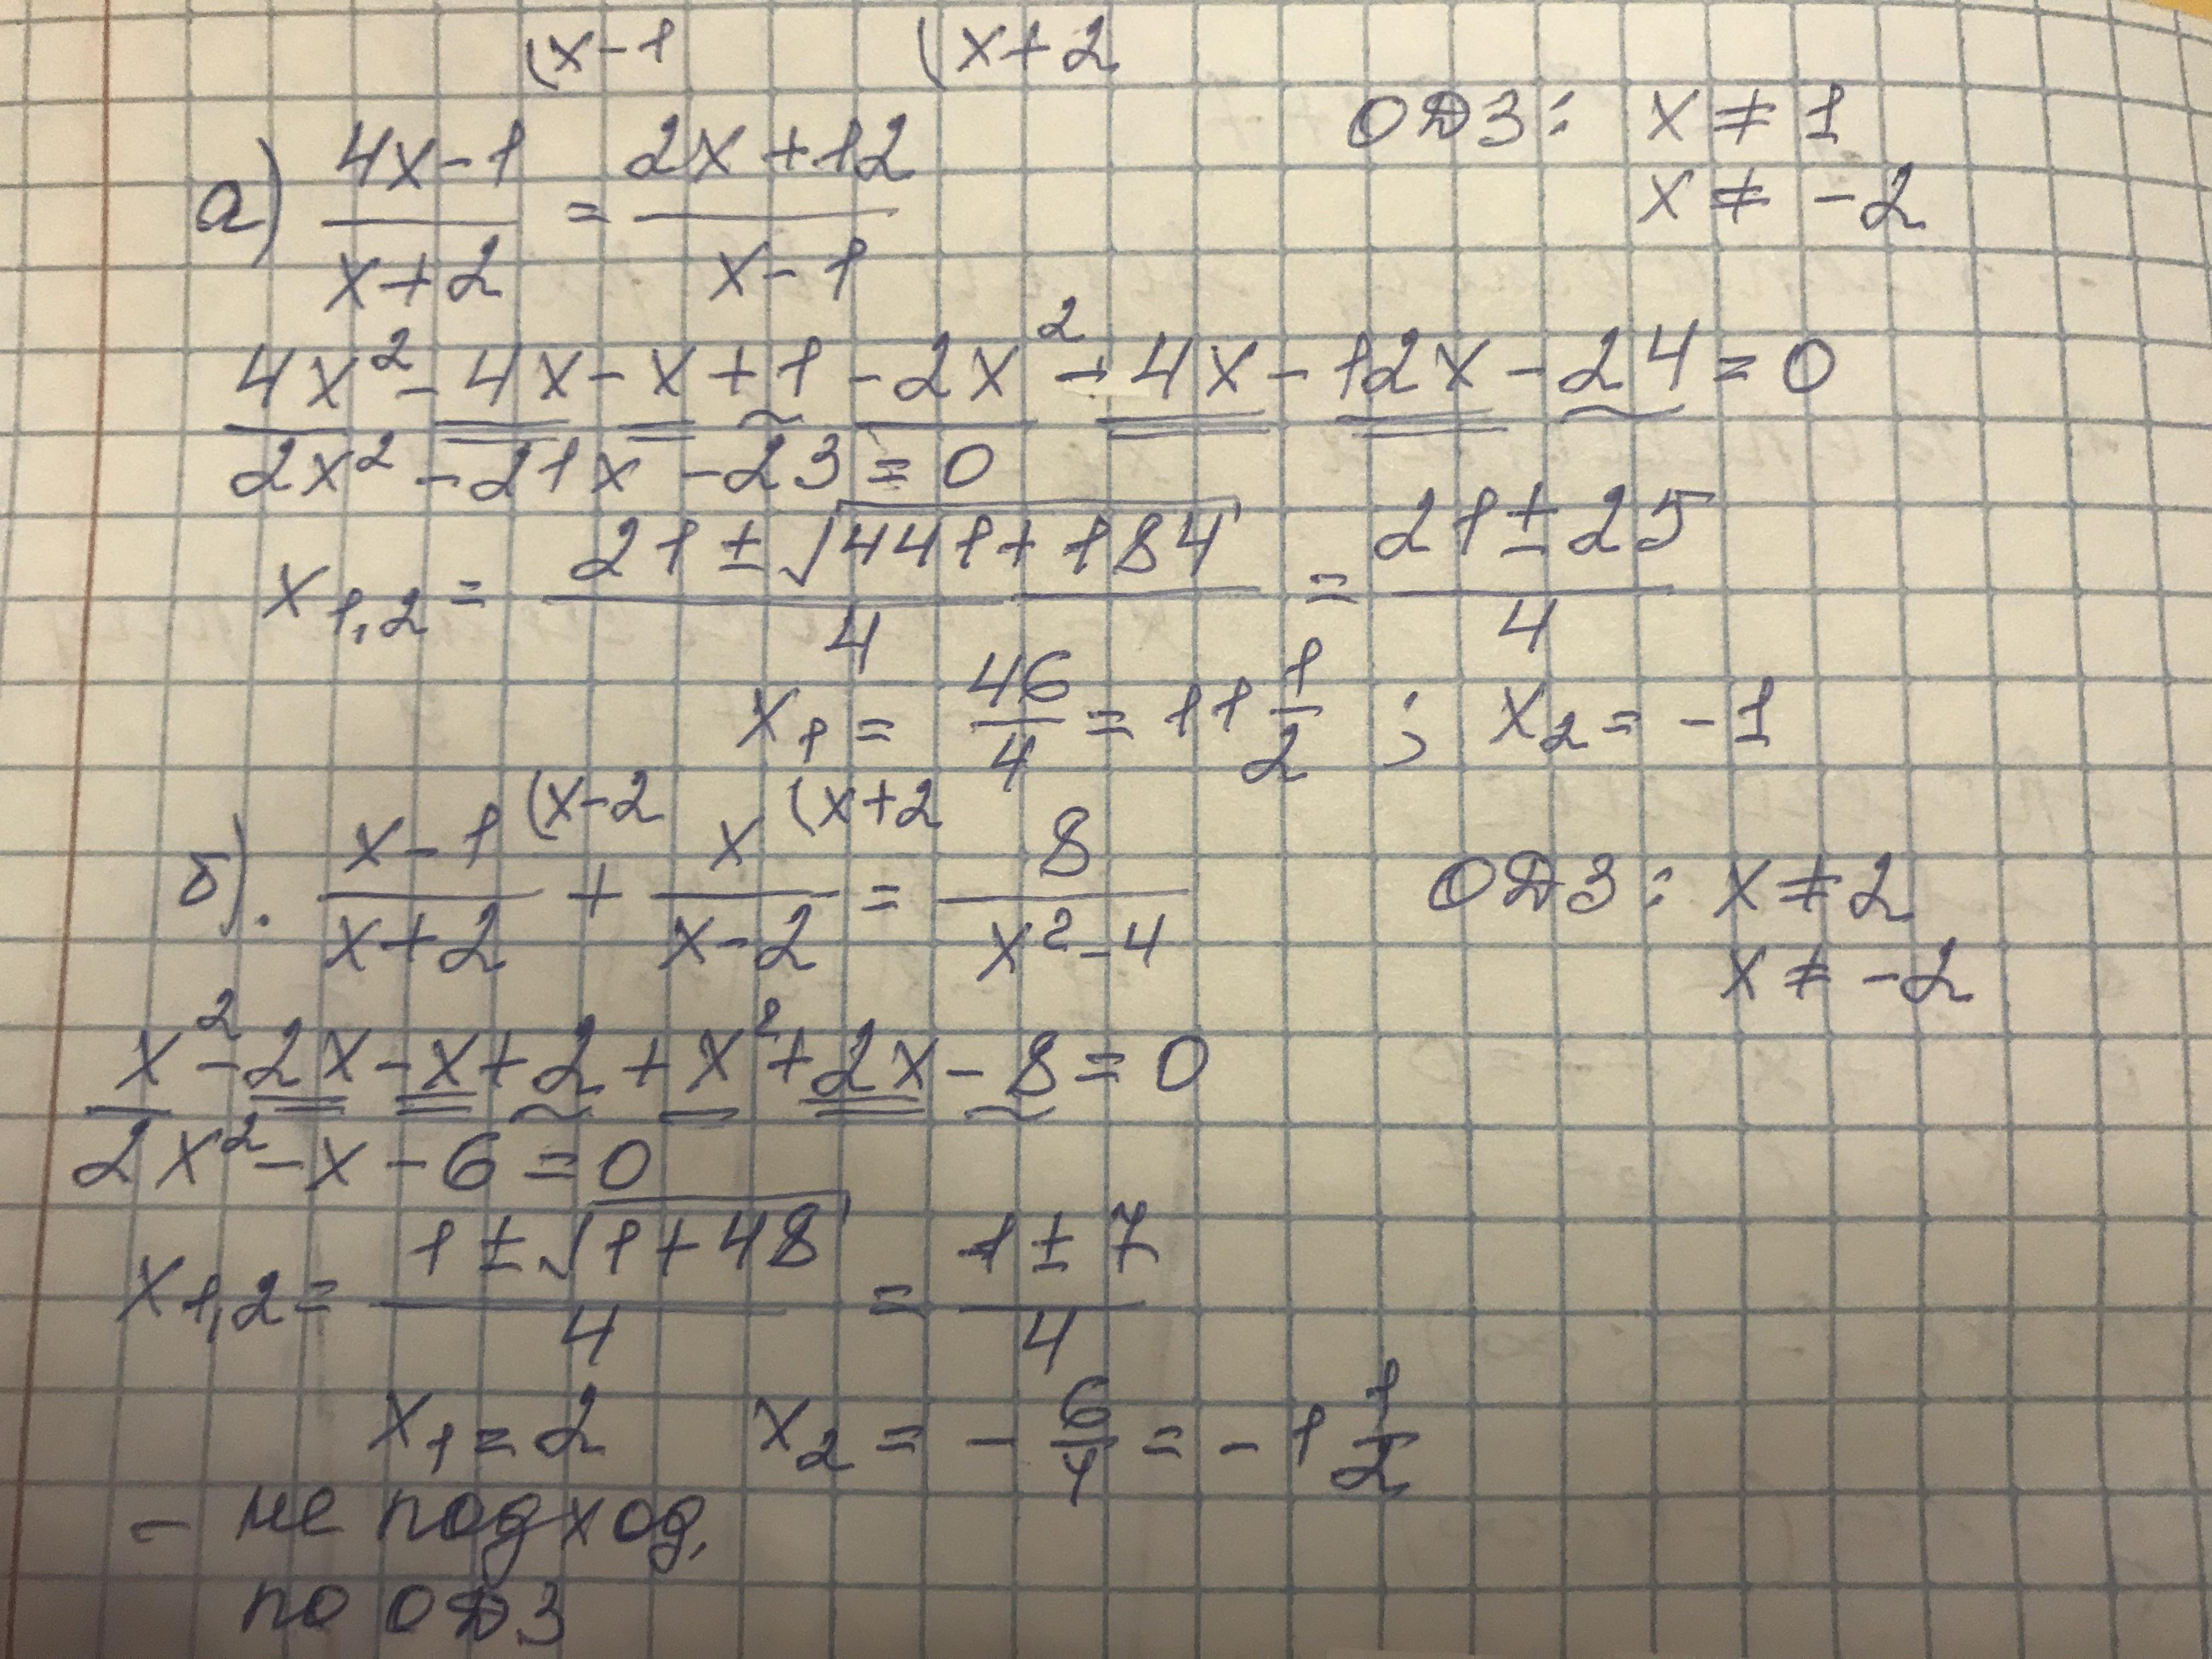 (x-1 (x+2
а) (4x-1)/(x+2) = (2x+12)/(x-1) ОДЗ: x ≠ 1
x ≠ -2
4x² - 4x - x + 1 - 2x² - 4x - 12x - 24 = 0
2x² - 21x - 23 = 0
x₁,₂ = (21 ± √(441+184))/4 = (21 ± 25)/4
x₁ = 46/4 = 11 1/2 ; x₂ = -1
б). (x-1)/(x+2) (x-2 + x/(x-2) (x+2 = 8/(x²-4) ОДЗ: x ≠ 2
x ≠ -2
x² - 2x - x + 2 + x² + 2x - 8 = 0
2x² - x - 6 = 0
x₁,₂ = (1 ± √(1+48))/4 = (1 ± 7)/4
x₁ = 2 x₂ = - 6/4 = -1 1/2
- не подход.
по ОДЗ